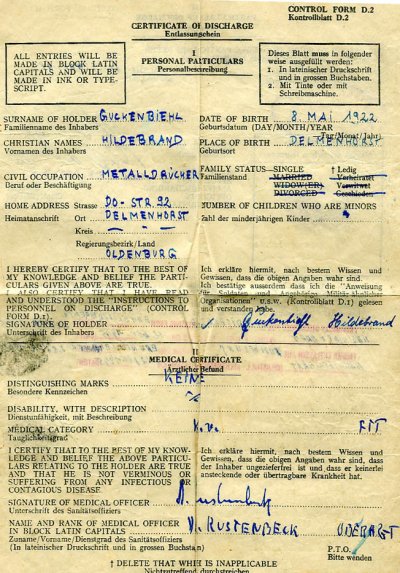 CONTROL FORM D.2
Kontrollblatt D.2
CERTIFICATE OF DISCHARGE
Entlassungschein
ALL ENTRIES WILL BE
MADE IN BLOCK LATIN
CAPITALS AND WILL BE
MADE IN INK OR TYPE-
SCRIPT.
I
PERSONAL PARTICULARS
Personalbeschreibung
Dieses Blatt muss in folgender
weise ausgefüllt werden:
1. In lateinischer Druckschrift
und in grossen Buchstaben.
2. Mit Tinte oder mit
Schreibmaschine.
SURNAME OF HOLDER GUCKENBIEHL
Familienname des Inhabers
CHRISTIAN NAMES HILDEBRAND
Vornamen des Inhabers
CIVIL OCCUPATION METALLDRÜCKER
Beruf oder Beschäftigung
HOME ADDRESS Strasse DO-STR. 92
Heimatanschrift Ort DELMENHORST
Kreis
Regierungsbezirk/Land
OLDENBURG
DATE OF BIRTH 8 MAI 1922
Geburtsdatum (DAY/MONTH/YEAR
Tag/Monat/Jahr)
PLACE OF BIRTH DELMENHORST
Geburtsort
FAMILY STATUS—SINGLE † Ledig
Familienstand MARRIED Verheiratet
WIDOW(ER) Verwitwet
DIVORCED Geschieden
NUMBER OF CHILDREN WHO ARE MINORS
Zahl der minderjährigen Kinder
I HEREBY CERTIFY THAT TO THE BEST OF
MY KNOWLEDGE AND BELIEF THE PARTI-
CULARS GIVEN ABOVE ARE TRUE.
I ALSO CERTIFY THAT I HAVE READ
AND UNDERSTOOD THE "INSTRUCTIONS TO
PERSONNEL ON DISCHARGE" (CONTROL
FORM D.1).
SIGNATURE OF HOLDER
Unterschrift des Inhabers
Ich erkläre hiermit, nach bestem Wissen und
Gewissen, dass die obigen Angaben wahr sind.
Ich bestätige ausserdem dass ich die "Anweisung
für Soldaten und Angehörige Militär-ähnlicher
Organisationen" u.s.w. (Kontrollblatt D.1) gelesen
und verstanden habe.
Guckenbiehl Hildebrand
II
MEDICAL CERTIFICATE
Ärztlicher Befund
DISTINGUISHING MARKS KEINE
Besondere Kennzeichen
DISABILITY, WITH DESCRIPTION
Dienstunfähigkeit, mit Beschreibung
MEDICAL CATEGORY k.v. FIT
Tauglichkeitsgrad
I CERTIFY THAT TO THE BEST OF MY KNOW-
LEDGE AND BELIEF THE ABOVE PARTICU-
LARS RELATING TO THE HOLDER ARE TRUE
AND THAT HE IS NOT VERMINOUS OR
SUFFERING FROM ANY INFECTIOUS OR
CONTAGIOUS DISEASE.
Ich erkläre hiermit, nach bestem Wissen und
Gewissen, dass die obigen Angaben wahr sind, dass
der Inhaber ungezieferfrei ist und dass er keinerlei
ansteckende oder übertragbare Krankheit hat.
SIGNATURE OF MEDICAL OFFICER
Unterschrift des Sanitätsoffiziers
NAME AND RANK OF MEDICAL OFFICER RUSTENBECK
IN BLOCK LATIN CAPITALS
Zuname/Vorname/Dienstgrad des Sanitätsoffiziers
(In lateinischer Druckschrift und in grossen Buchstaben)
P.T.O.
Bitte wenden
† DELETE THAT WHICH IS INAPPLICABLE
Nichtzutreffend durchstreichen